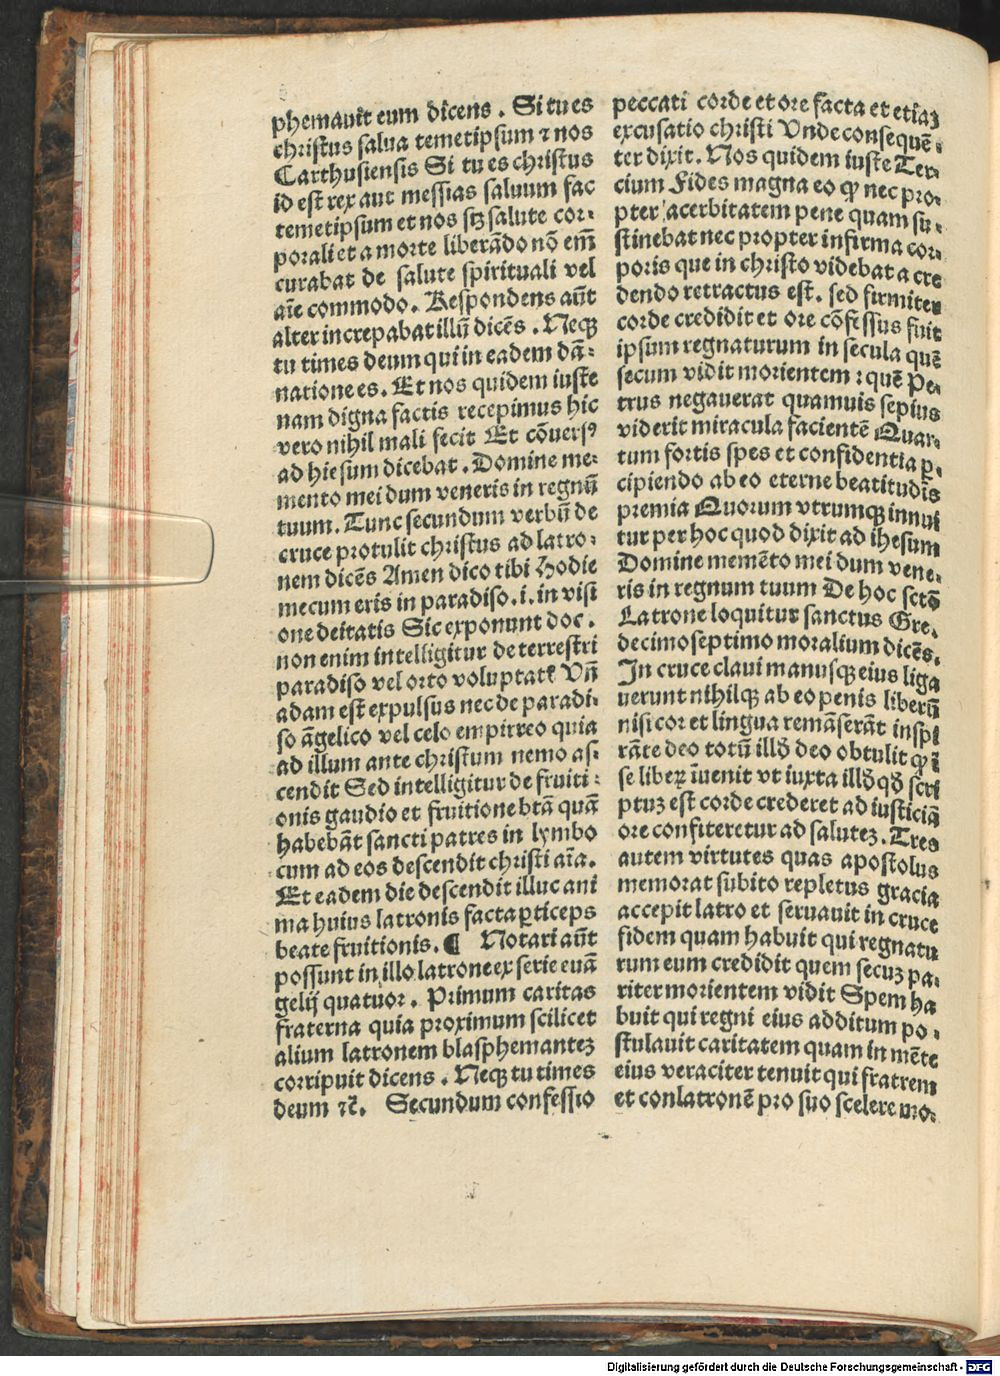 phemauit eum dicens. Si tu es
christus salua temetipsum ⁊ nos
Carthusiensis Si tu es christus
id est rex aut messias saluum fac
temetipsum et nos sꝫ salute cor⸗
porali et a morte liberādo nō em̄
curabat de salute spirituali vel
aīe commodo. Respondens aūt
alter increpabat illū dicēs. Neqꝫ
tu times deum qui in eadem dā⸗
natione es. Et nos quidem iuste
nam digna factis recepimus hic
vero nihil mali fecit Et cōuersꝰ
ad hiesum dicebat. Domine me⸗
mento mei dum veneris in regnū
tuum. Tunc secundum verbū de
cruce protulit christus ad latro⸗
nem dicēs Amen dico tibi Hodie
mecum eris in paradiso. i. in visi
one deitatis Sic exponunt doc.
non enim intelligitur de terrestri
paradiso vel orto voluptatꝭ Vn̄
adam est expulsus nec de paradi⸗
so āgelico vel celo empirreo quia
ad illum ante christum nemo as⸗
cendit Sed intelligitur de fruiti⸗
onis gaudio et fruitione btā quā
habebāt sancti patres in lymbo
cum ad eos descendit christi aīa.
Et eadem die descendit illuc ani
ma huius latronis facta ꝑticeps
beate fruitionis. ¶ Notari aūt
possunt in illo latrone ex serie euā
gelij quatuor. Primum caritas
fraterna quia proximum scilicet
alium latronem blasphemanteꝫ
corripuit dicens. Neqꝫ tu times
deum ⁊c̄. Secundum confessio
peccati corde et ore facta et etiaꝫ
excusatio christi Vnde consequē⸗
ter dixit. Nos quidem iuste Ter⸗
cium Fides magna eo ꝙ nec pro⸗
pter acerbitatem pene quam su⸗
stinebat nec propter infirma cor⸗
poris que in christo videbat a cre
dendo retractus est. sed firmiter
corde credidit et ore cōfessus fuit
ipsum regnaturum in secula quē
secum vidit morientem : quē Pe⸗
trus negauerat quamuis sepius
viderit miracula facientē Quar⸗
tum fortis spes et confidentia ꝑ⸗
cipiendo ab eo eterne beatitudis̄
premia Quorum vtrumqꝫ innui
tur per hoc quod dixit ad ihesum
Domine memēto mei dum vene⸗
ris in regnum tuum De hoc sctō
Latrone loquitur sanctus Gre⸗
decimoseptimo moralium dicēs.
In cruce claui manusqꝫ eius liga
uerunt nihilqꝫ ab eo penis liberū
nisi cor et lingua remāserāt inspi
rāte deo totū illō deo obtulit ꝙ ī
se liberꝫ īuenit vt iuxta illō qō scri
ptuꝫ est corde crederet ad iusticiā
ore confiteretur ad saluteꝫ. Tres
autem virtutes quas apostolus
memorat subito repletus gracia
accepit latro et seruauit in cruce
fidem quam habuit qui regnatu
rum eum credidit quem secuꝫ pa⸗
riter morientem vidit Spem ha
buit qui regni eius additum po⸗
stulauit caritatem quam in mēte
eius veraciter tenuit qui fratrem
et conlatronē pro suo scelere mo⸗
Digitalisierung gefördert durch die Deutsche Forschungsgemeinschaft - DFG